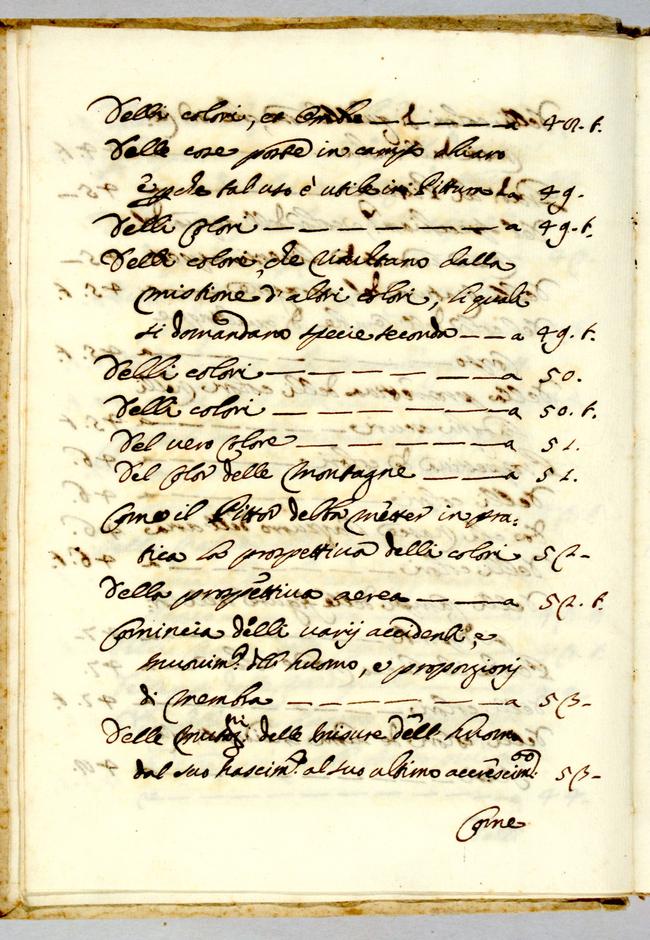 Delli colori, et ombre — — — a 48. t.
Delle cose poste in campo chiaro
e perche tal uso è utile in Pittura a 49.
Delli Colori — — — — — — a 49. t.
Delli colori, che risultano dalla
mistione d'altri colori, li quali
si domandano specie seconda — — a 49. t.
Delli colori — — — — — — a 50.
Delli colori — — — — — — a 50. t.
Del vero Colore — — — — — a 51.
Del Color delle Montagne — — a 51.
Come il Pittor debba metter in pra:
tica la prospettiva delli colori 52 —
Della prospettiva aerea — — — a 52. t.
Comincia delli varij accidenti, e
movim.ti dell' huomo, e proporzionj
di Membra — — — — — — a 53 —
Delle Mutaz.ni delle misure dell' huomo
dal suo nascim.to al suo ultimo accrescim.to 53 —
Come